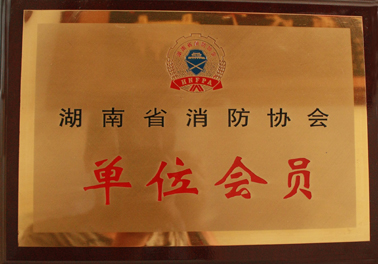 HNFPA
湖南省消防协会
单位会员